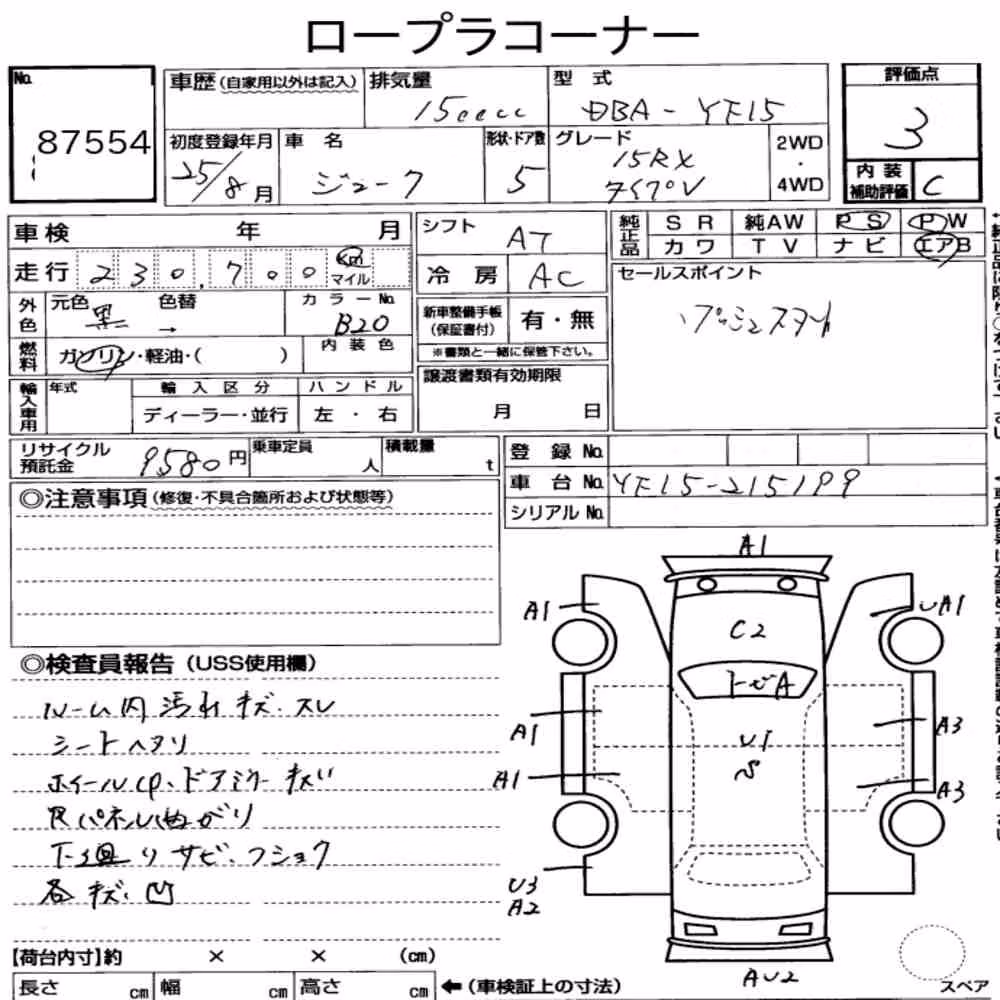 ロープラコーナー
No.
87554
車歴(自家用以外は記入)
排気量
1500cc
型式
DBA-YF15
初度登録年月
25/8月
車名
ジューク
形状・ドア数
5
グレード
15RX
2WD
・
4WD
評価点
3
内装
補助評価
C
車検 年 月
走行 230,700 km
マイル
外色
元色 黒
色替 →
カラーNo.
B20
燃料
ガソリン・軽油・( )
内装色
輸入車用
年式
輸入区分
ディーラー・並行
ハンドル
左・右
シフト
AT
冷房
AC
新車整備手帳
(保証書付)
有・無
※書類と一緒に保管下さい。
譲渡書類有効期限
月 日
純正品
SR 純AW PS PW
カワ TV ナビ エアB
セールスポイント
プッシュスタート
リサイクル
預託金
9580円
乗車定員
人
積載量
t
登録No.
車台No. YF15-215199
シリアルNo.
◎注意事項(修復・不具合箇所および状態等)
◎検査員報告(USS使用欄)
ルーム内汚れキズ・スレ
シートヘタリ
ホイールCP、ドアミラーキズ
Rパネルまがり
下廻りサビ・フショク
各キズ、凹
A1
A1
A1
C2
トビA
A1
A3
U1
S
A1
A3
U3
A2
AU2
【荷台内寸】約 × × (cm)
長さ cm 幅 cm 高さ cm ←(車検証上の寸法)
スペア